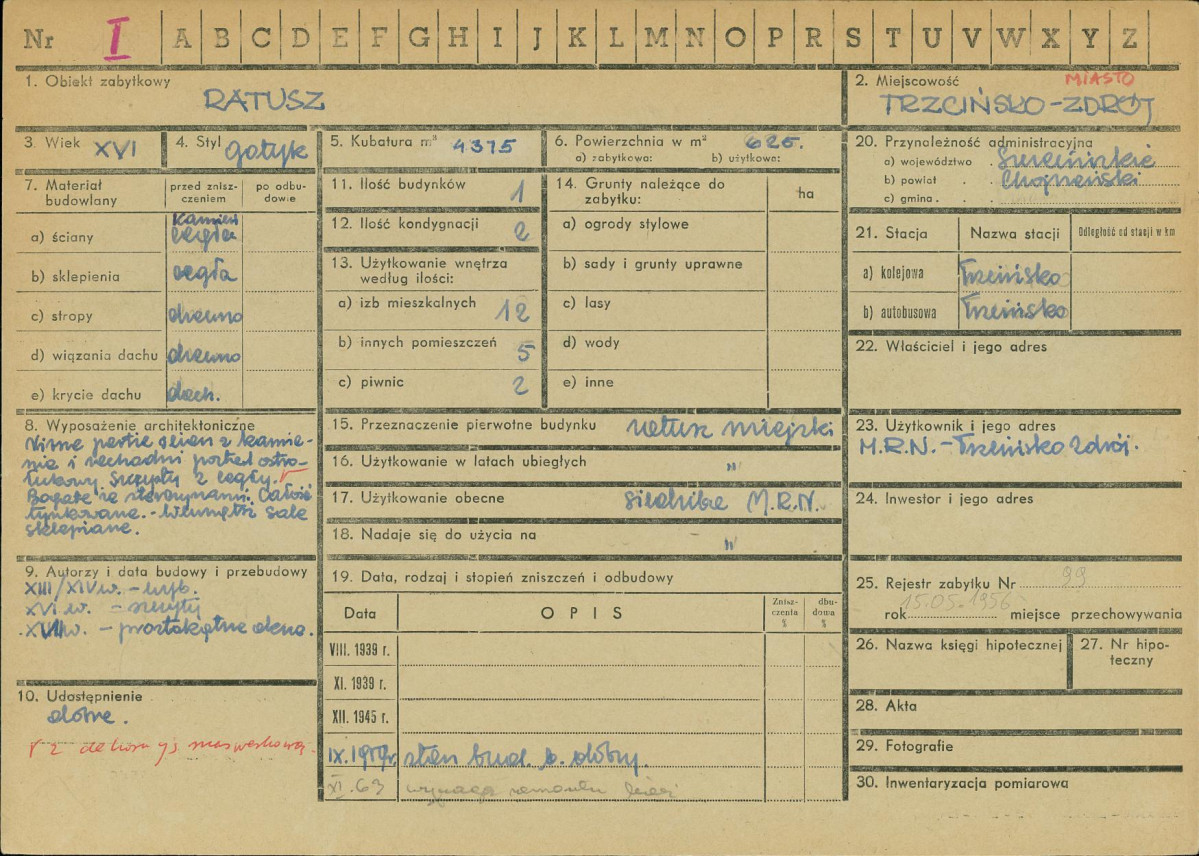 Nr I A B C D E F G H I J K L M N O P R S T U V W X Y Z
1. Obiekt zabytkowy
RATUSZ
2. Miejscowość MIASTO
TRZCIŃSKO-ZDRÓJ
3. Wiek XVI
4. Styl gotyk
5. Kubatura m³ 4375
6. Powierzchnia w m² 625.
a) zabytkowa: b) użytkowa:
20. Przynależność administracyjna
a) województwo Szczecińskie
b) powiat Chojneński
c) gmina
7. Materiał budowlany
przed zniszczeniem
po odbudowie
a) ściany kamień cegła
b) sklepienia cegła
c) stropy drewno
d) wiązania dachu drewno
e) krycie dachu dach.
11. Ilość budynków 1
12. Ilość kondygnacji 2
13. Użytkowanie wnętrza
według ilości:
a) izb mieszkalnych 12
b) innych pomieszczeń 5
c) piwnic 2
14. Grunty należące do
zabytku: ha
a) ogrody stylowe
b) sady i grunty uprawne
c) lasy
d) wody
e) inne
21. Stacja Nazwa stacji Odległość od stacji w km
a) kolejowa Trzcińsko
b) autobusowa Trzcińsko
22. Właściciel i jego adres
8. Wyposażenie architektoniczne
partie ścian z kamie-
nia i zachodni portal ostro-
łukowy. Szczyty z cegły.
Bogate ze sterczynami. Całość
tynkowana. - Wewnątrz sale
sklepiane.
15. Przeznaczenie pierwotne budynku ratusz miejski
16. Użytkowanie w latach ubiegłych "
17. Użytkowanie obecne siedziba M.R.N.
18. Nadaje się do użycia na "
23. Użytkownik i jego adres
M.R.N. - Trzcińsko Zdrój.
24. Inwestor i jego adres
9. Autorzy i data budowy i przebudowy
XIII/XIV w. - wyb.
XVI w. - szczyty
XVIII w. - prostokątne okna.
19. Data, rodzaj i stopień zniszczeń i odbudowy
Data OPIS Zniszczenia % dbudowa %
VIII. 1939 r.
XI. 1939 r.
XII. 1945 r.
IX. 1959r. stan bud. b. dobry.
XI. 63 wymaga remontu
25. Rejestr zabytku Nr 99
rok 15.05.1956 miejsce przechowywania
26. Nazwa księgi hipotecznej
27. Nr hipoteczny
10. Udostępnienie
dobre.
z dekoracją maswerkową.
28. Akta
29. Fotografie
30. Inwentaryzacja pomiarowa